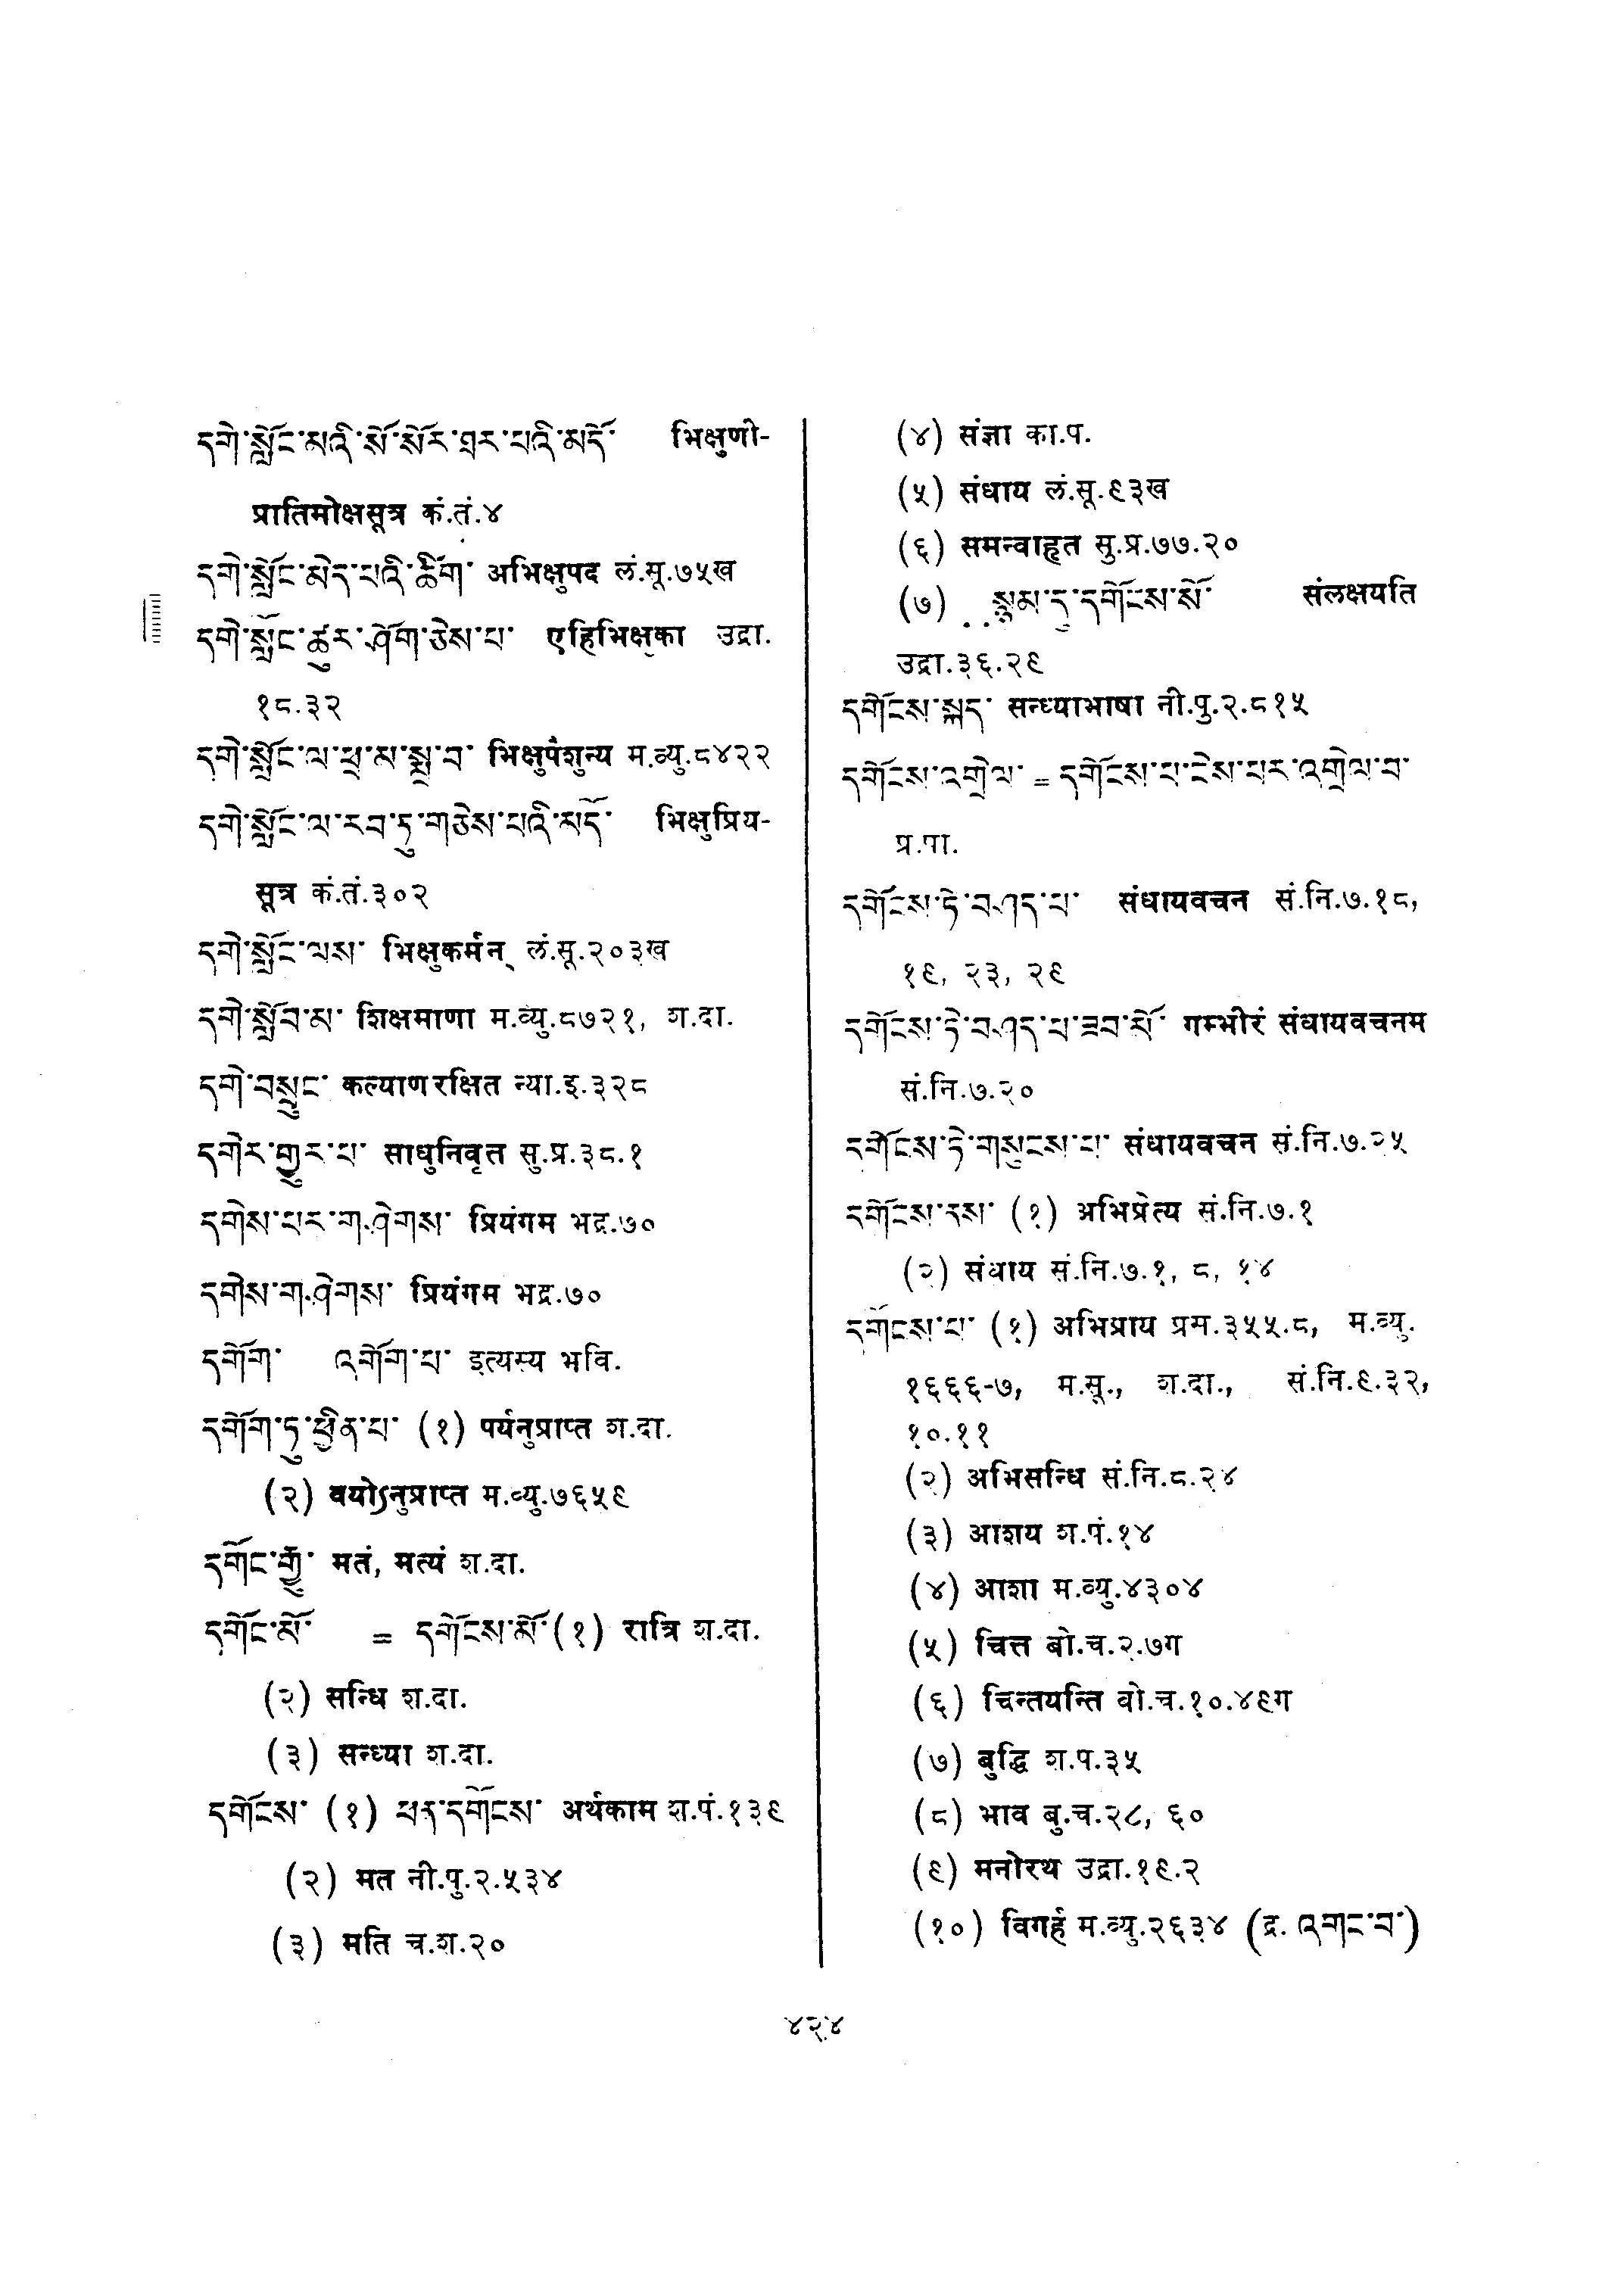 དགེ་སློང་མའི་སོ་སོར་ཐར་པའི་མདོ་ भिक्षुणी-
प्रातिमोक्षसूत्र कं.तं.४
དགེ་སློང་མེད་པའི་ཚིག་ अभिक्षुपद लं.सू.७५ख
དགེ་སློང་ཚུར་ཤོག་ཅེས་པ་ एहिभिक्षुका उद्रा.
१८.३२
དགེ་སློང་ལ་ཕྲ་མ་སྨྲ་བ་ भिक्षुपैशुन्य म.व्यु.८४२२
དགེ་སློང་ལ་རབ་ཏུ་གཅེས་པའི་མདོ་ भिक्षुप्रिय-
सूत्र कं.तं.३०२
དགེ་སློང་ལས་ भिक्षुकर्मन् लं.सू.२०३ख
དགེ་སློབ་མ་ शिक्षमाणा म.व्यु.८७२१, श.दा.
དགེ་བསྲུང་ कल्याणरक्षित न्या.इ.३२८
དགེར་གྱུར་པ་ साधुनिवृत सु.प्र.३८.१
དགེས་པར་ག་ཤེགས་ प्रियंगम भद्र.७०
དགེས་ག་ཤེགས་ प्रियंगम भद्र.७०
དགོག་ འགོག་པ་ इत्यस्य भवि.
དགོག་ཏུ་ཕྱིན་པ་ (१) पर्यनुप्राप्त श.दा.
(२) वयोऽनुप्राप्त म.व्यु.७६५९
དགོང་གྱོ་ मतं, मत्यं श.दा.
དགོང་མོ་ = དགོངས་མོ་ (१) रात्रि श.दा.
(२) सन्धि श.दा.
(३) सन्ध्या श.दा.
དགོངས་ (१) ཕན་དགོངས་ अर्थकाम श.पं.१३९
(२) मत नी.पु.२.५३४
(३) मति च.श.२०
(४) संज्ञा का.प.
(५) संधाय लं.सू.९३ख
(६) समन्वाहृत सु.प्र.७७.२०
(७) ..སྙམ་དུ་དགོངས་སོ་ संलक्षयति
उद्रा.३६.२९
དགོངས་སྐད་ सन्ध्याभाषा नी.पु.२.८१५
དགོངས་འགྲེལ་ = དགོངས་པ་ངེས་པར་འགྲེལ་བ་
प्र.पा.
དགོངས་ཏེ་བཤད་པ་ संधायवचन सं.नि.७.१८,
१९, २३, २९
དགོངས་ཏེ་བཤད་པ་ཟབ་མོ་ गम्भीरं संधायवचनम
सं.नि.७.२०
དགོངས་ཏེ་གསུངས་པ་ संधायवचन सं.नि.७.२५
དགོངས་ནས་ (१) अभिप्रेत्य सं.नि.७.१
(२) संधाय सं.नि.७.१, ८, १४
དགོངས་པ་ (१) अभिप्राय प्रम.३५५.८, म.व्यु.
१६६६-७, म.सू., श.दा., सं.नि.९.३२,
१०.११
(२) अभिसन्धि सं.नि.८.२४
(३) आशय श.पं.१४
(४) आशा म.व्यु.४३०४
(५) चित्त बो.च.२.७ग
(६) चिन्तयन्ति बो.च.१०.४९ग
(७) बुद्धि श.प.३५
(८) भाव बु.च.२८, ६०
(९) मनोरथ उद्रा.१९.२
(१०) विगर्ह म.व्यु.२६३४ (द्र. འགང་བ་)
४२४